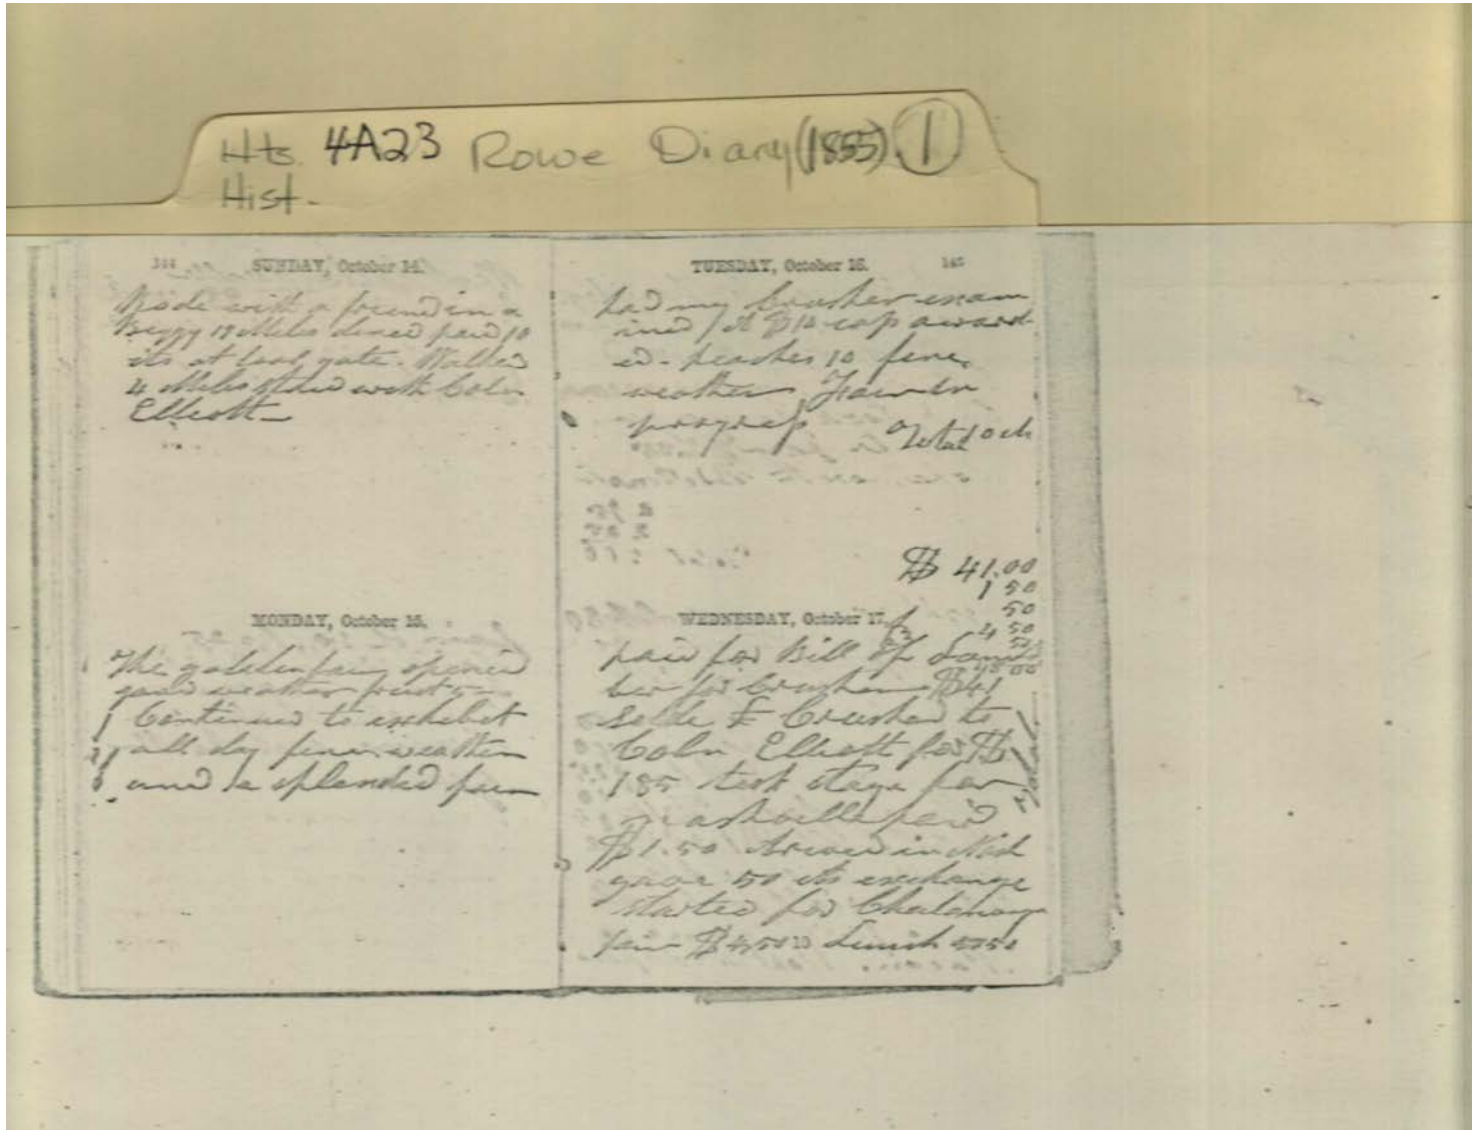 Hts. 4A23 Rowe Diary (1855) 1
Hist.
144 SUNDAY, October 14.
Rode with a friend in a
Buggy 18 Miles dined paid 10
cts at toal gate. Walked
4 Miles staid with Coln
Ellicott
MONDAY, October 15.
The galleten fair opened
good weather
Continued to exhibit
all day fine weather
and a splended fair
TUESDAY, October 16. 145
had my Crusher exam
ined / A $10 cup award
ed. peaches 10 fine
weather Fair in
progress Total 10 cts
$ 41.00
1 50
50
4 50
50
WEDNESDAY, October 17.
paid for Bill of Lum
ber for Crusher $41
Solde Crusher to
Coln Ellicott for $
185 took stage for
nashville paid
$1.50 Arived in Nash
gave 50 cts exchange
started for Chatanoga
fair $4,50 Lunch 50